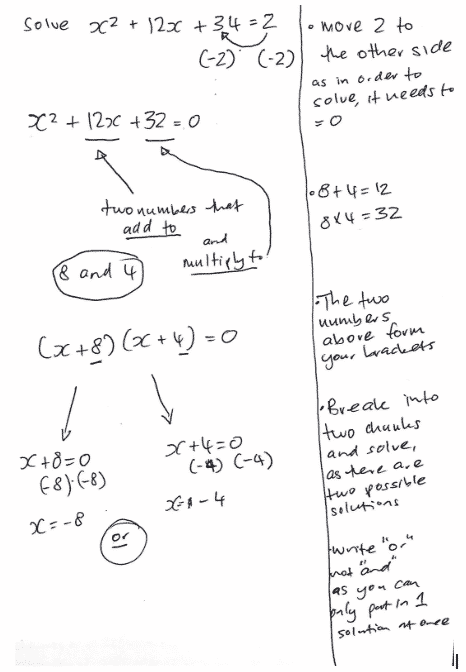 Solve x² + 12x + 34 = 2
(-2) (-2)
x² + 12x + 32 = 0
two numbers that
add to
and
multiply to
8 and 4
(x + 8) (x + 4) = 0
x+8=0
(-8) (-8)
x = -8
or
x+4=0
(-4) (-4)
x= -4
• move 2 to
the other side
as in order to
solve, it needs to
= 0
• 8+4=12
8x4 = 32
• The two
numbers
above form
your brackets
• Break into
two chunks
and solve,
as there are
two possible
solutions
• write "or"
not "and"
as you can
only put in 1
solution at once